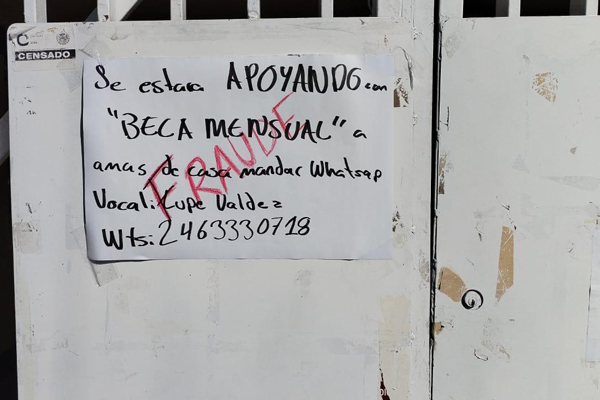 CENSADO
Se estara APOYANDO con
"BECA MENSUAL" a
amas de casa mandar Whatsap
FRAUDE
Vocal: Lupe Valdez
Wts: 2463330718